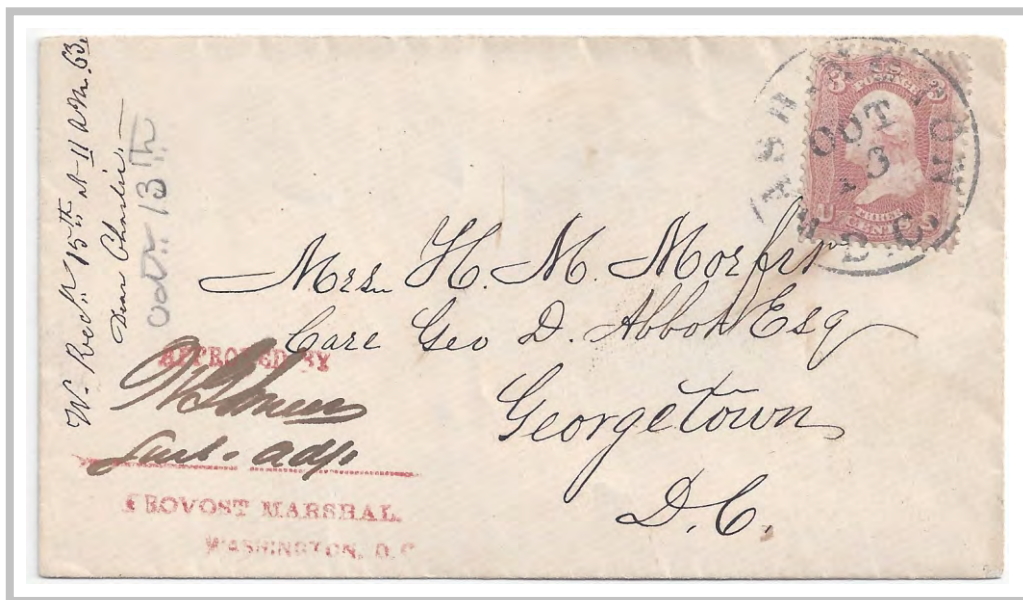 Rec'd 15th at 11 A.M. 63.
Dear Charlie. —
Oct. 13th
WASHINGTON
D.C.
OCT
U.S. POSTAGE
3 3
THREE
CENTS
Mrs. H. M.
Care Geo D. Abbott Esq
Georgetown
D.C.
APPROVED BY
Adj.
PROVOST MARSHAL.
WASHINGTON, D.C.